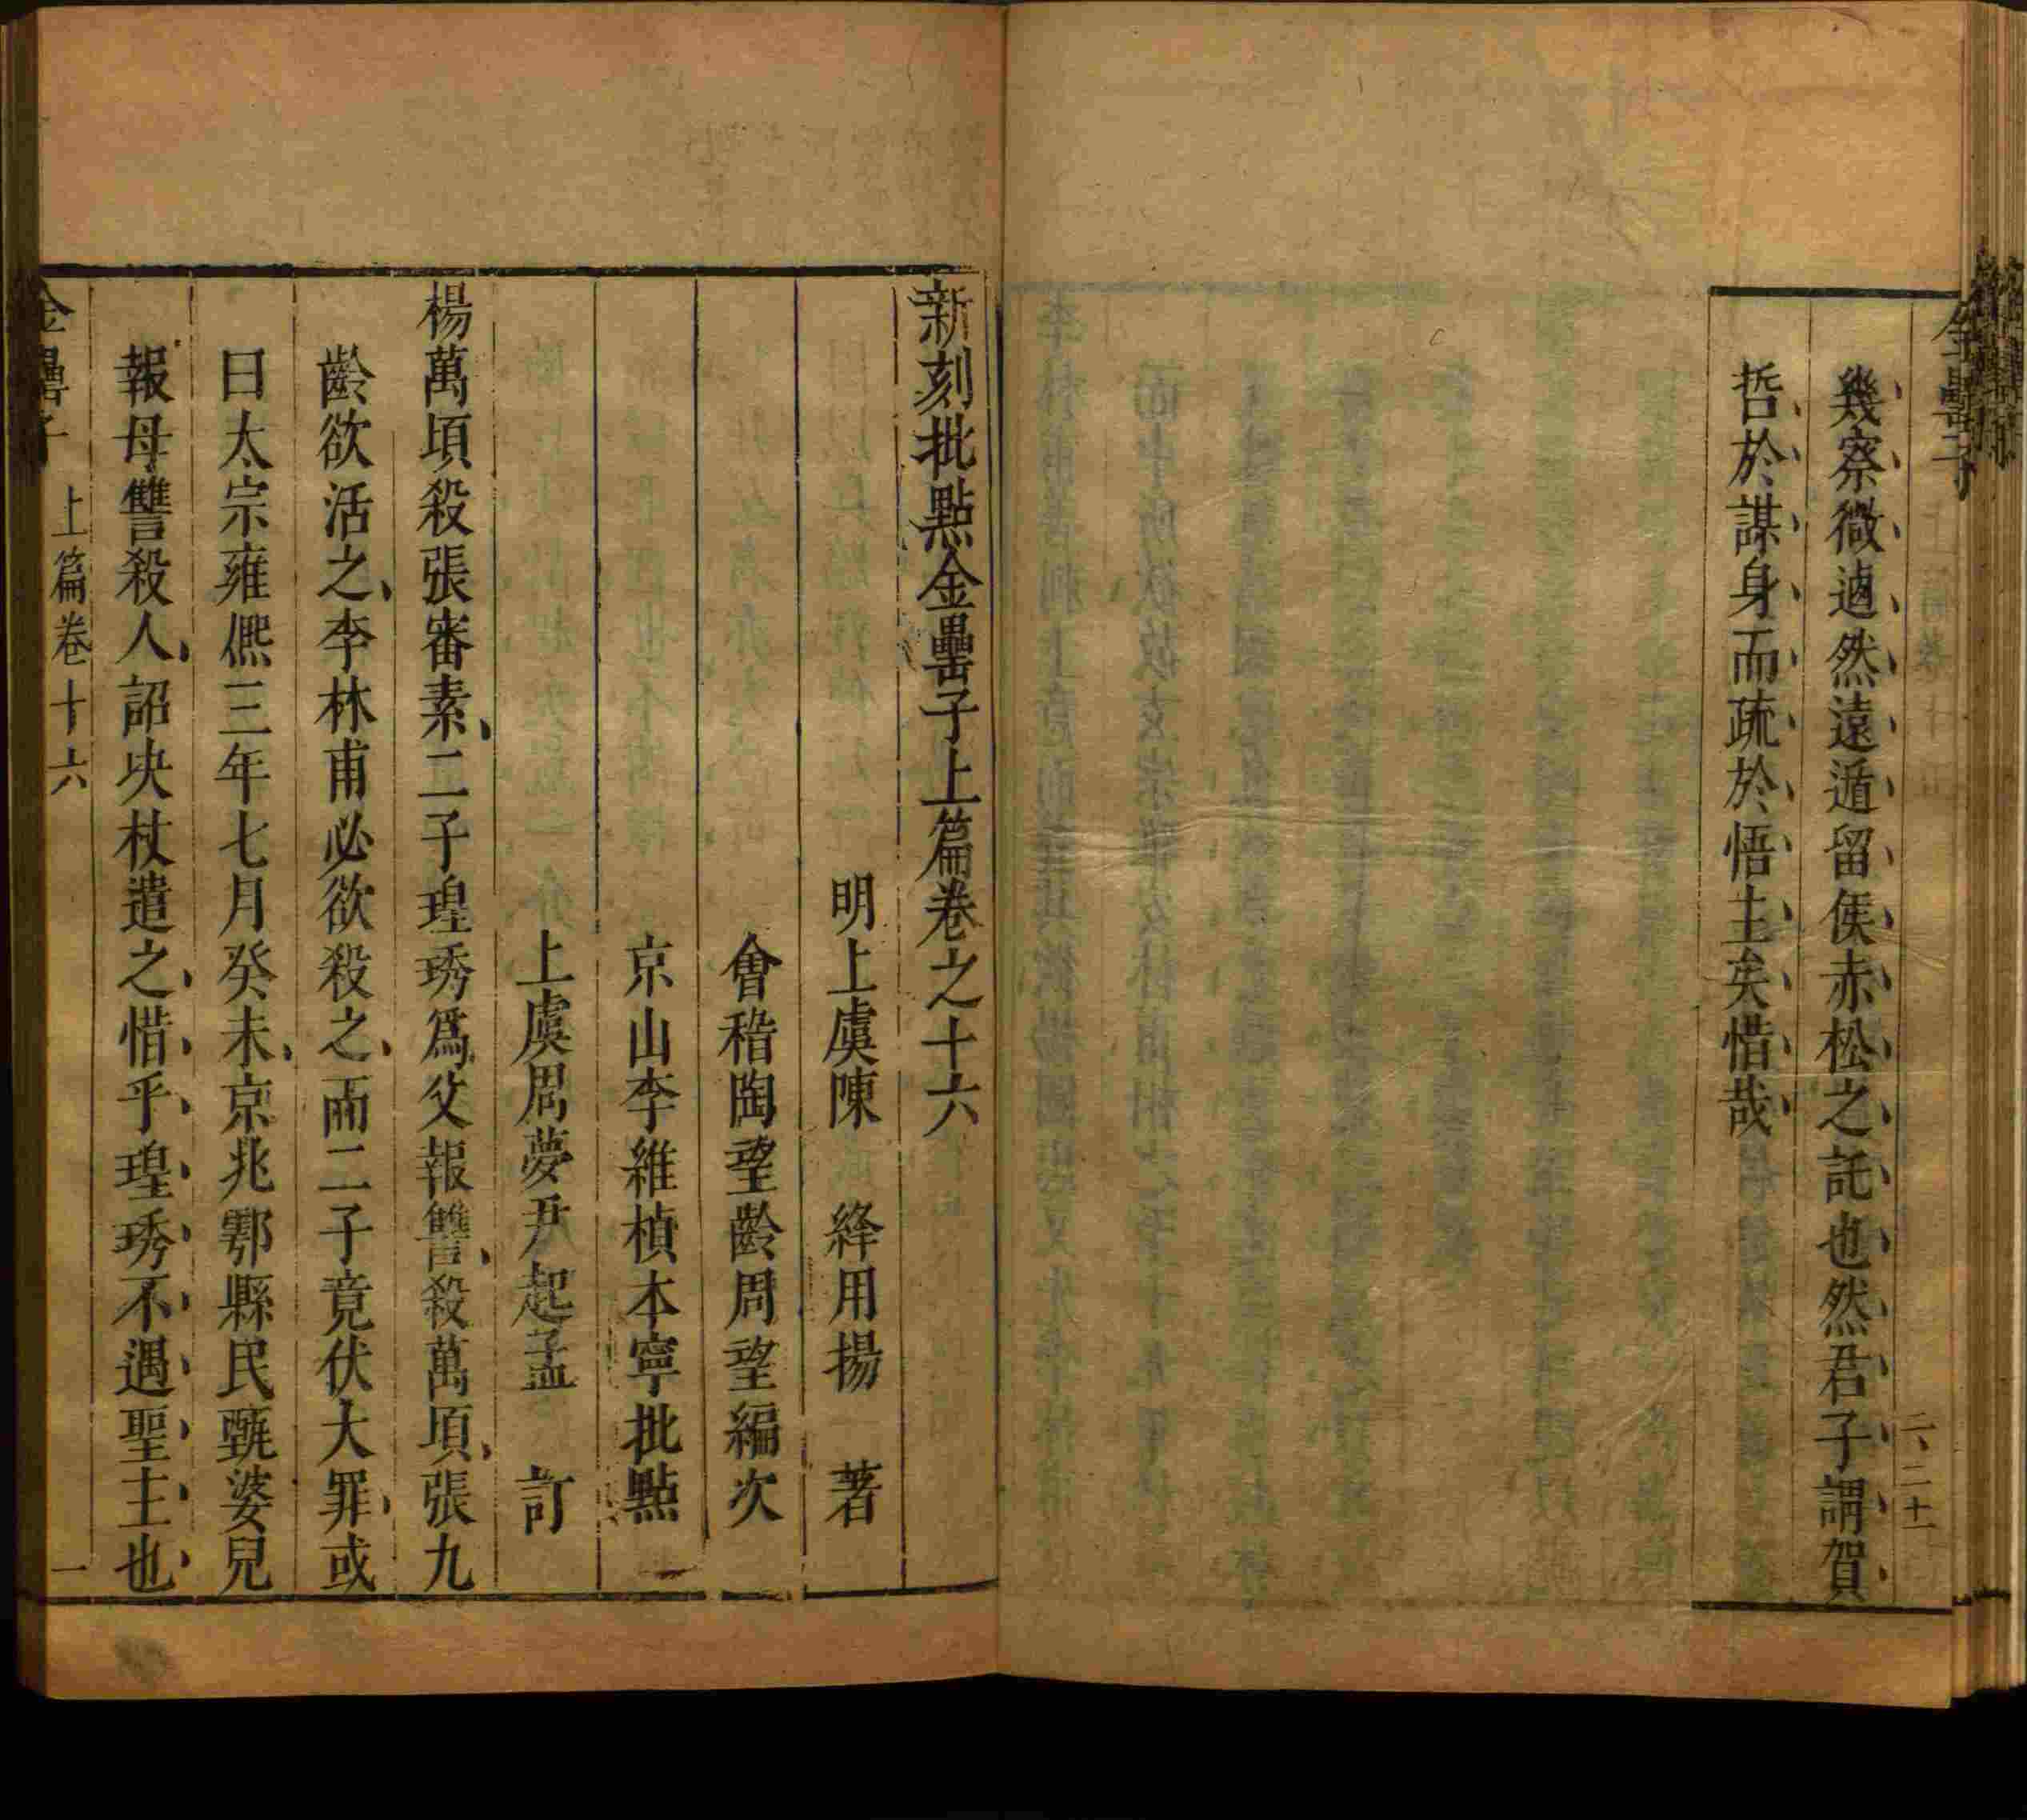 金罍子
二、二十一
幾察微適然遠遁留侯赤松之託也然君子謂賀
哲於謀身而疏於悟主矣惜哉
新刻批點金罍子上篇卷之十六
明上虞陳 絳用揚 著
會稽陶望齡周望編次
京山李維楨本寧批點
上虞周夢尹起孟 訂
楊萬頃殺張審素二子瑝琇爲父報讐殺萬頃張九
齡欲活之李林甫必欲殺之而二子竟伏大罪或
曰太宗雍熈三年七月癸未京兆鄠縣民甄婆兒
報母讐殺人詔决杖遣之惜乎瑝琇不遇聖主也
金罍子 上篇卷十六 一